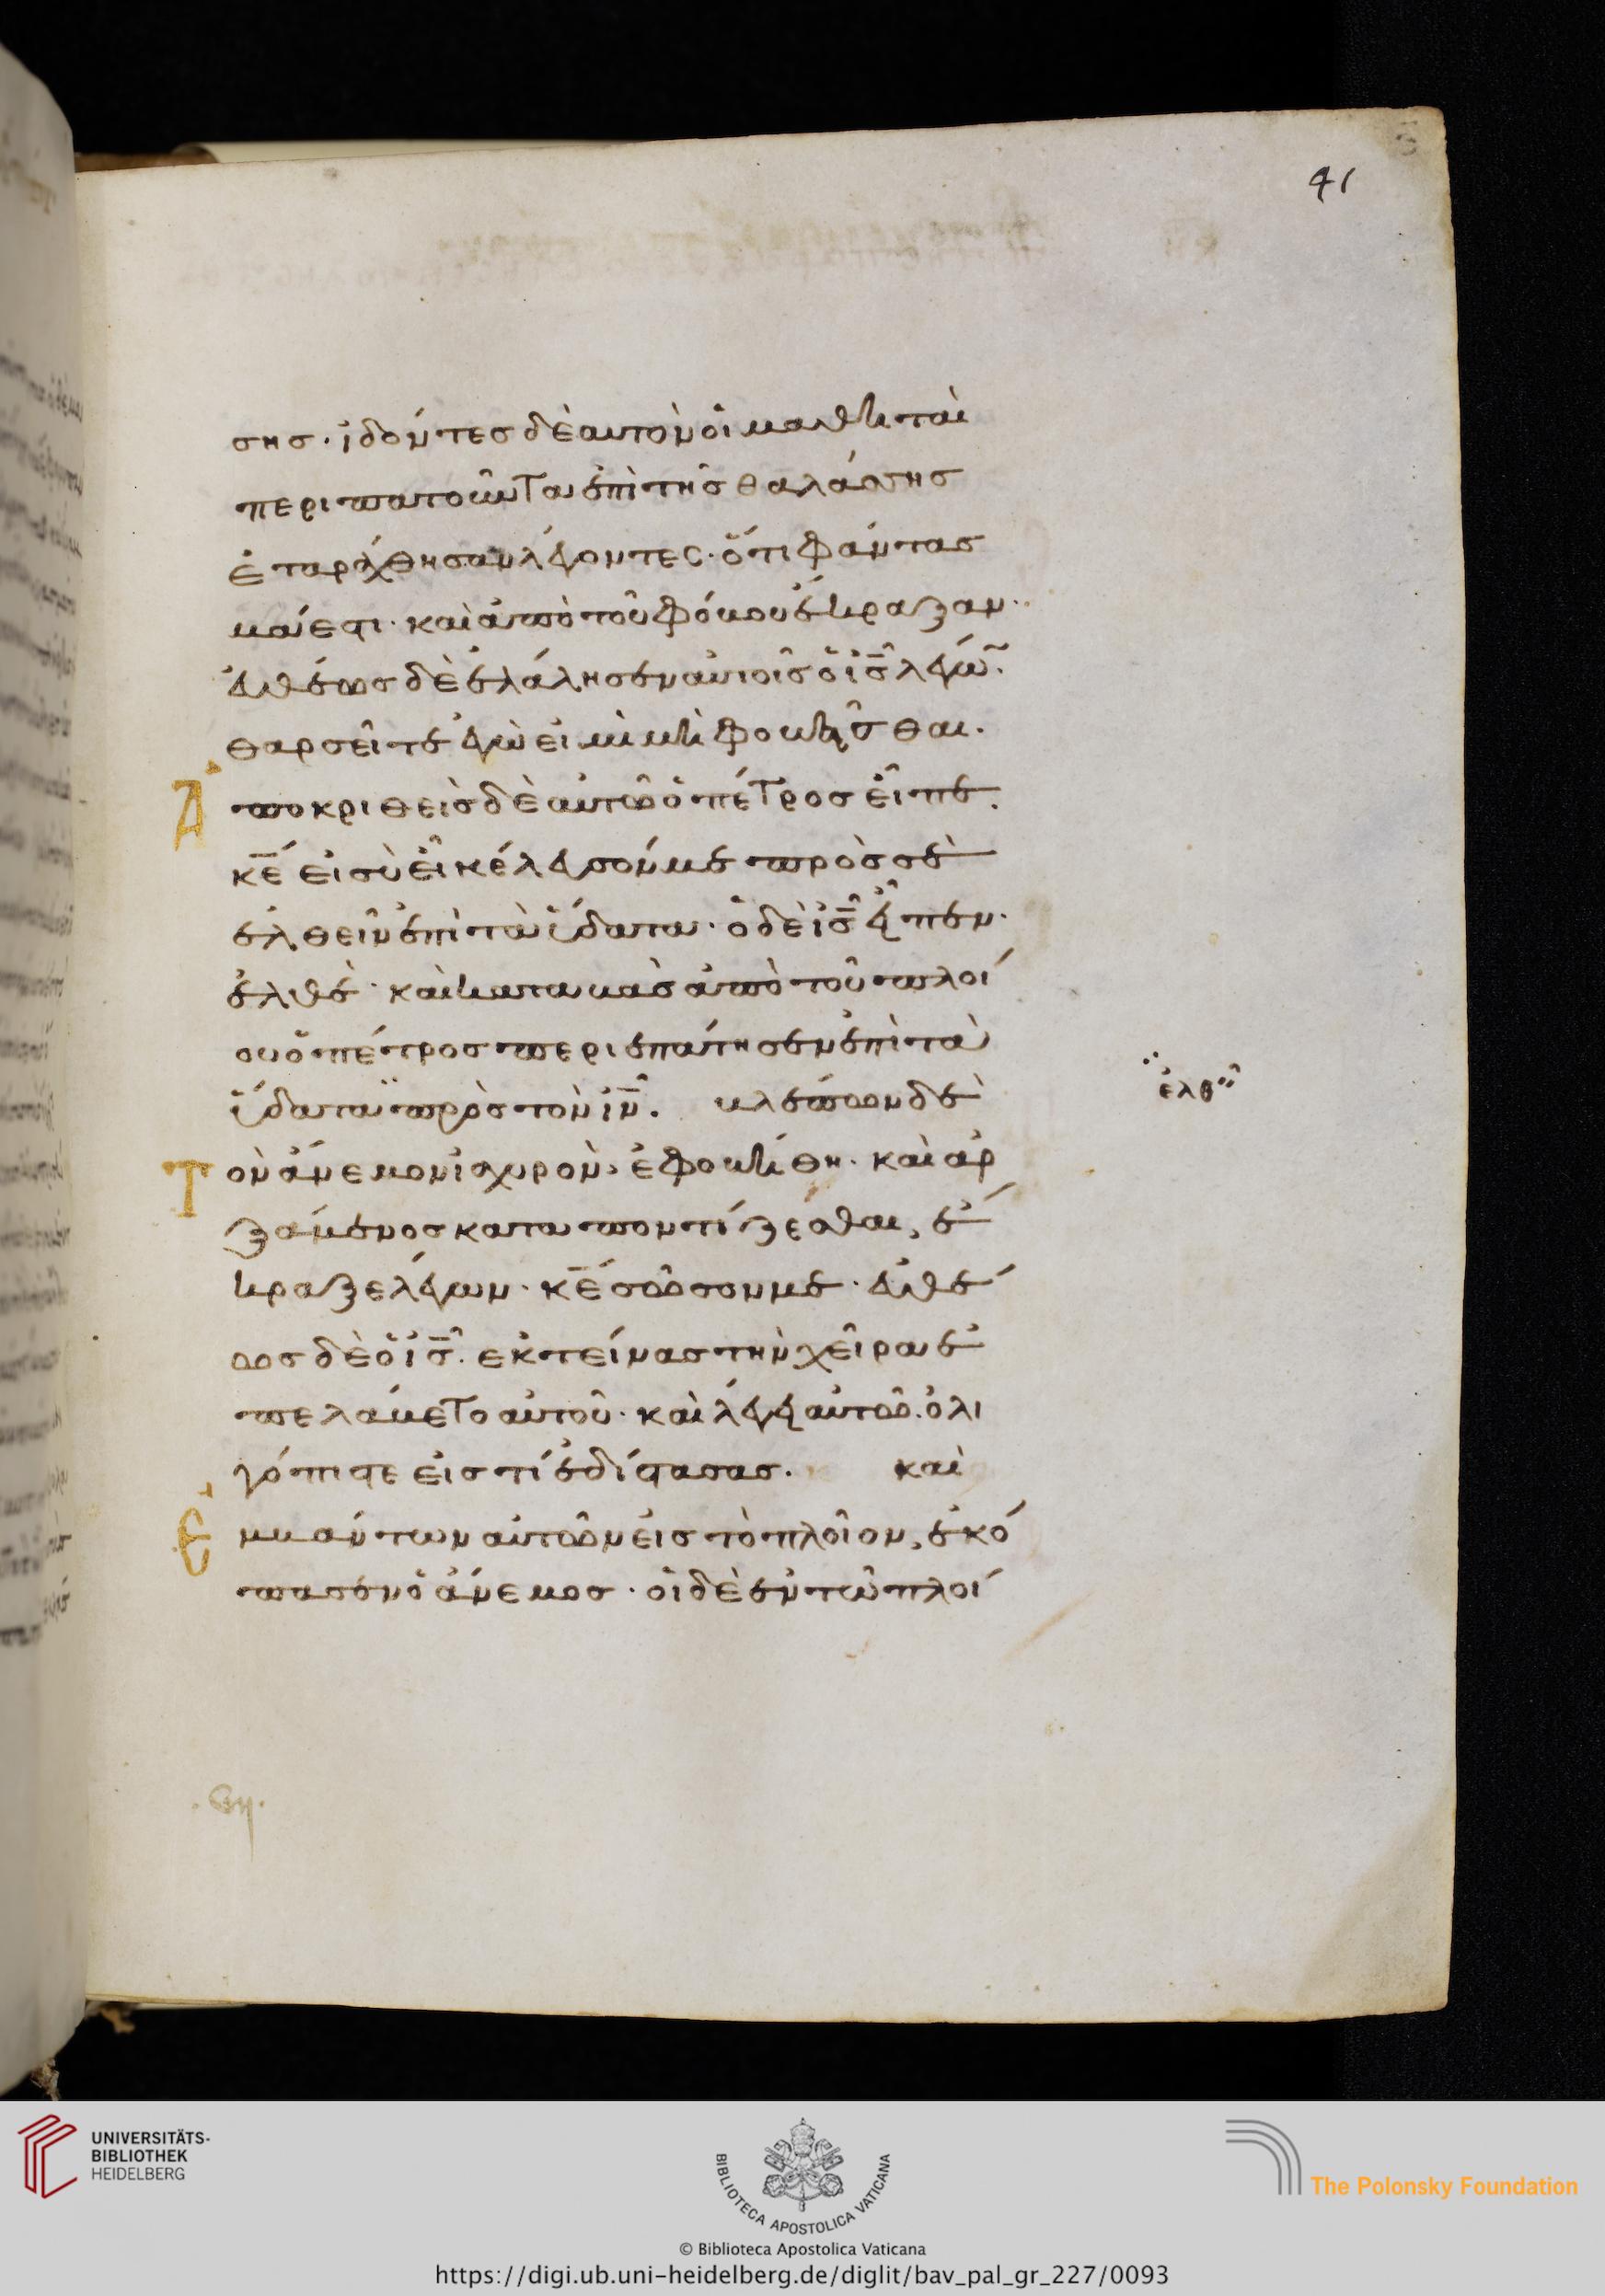 41
σης· ἰδόντες δὲ αυτὸν οἱ μαθηταὶ
περιπατοῦντα ἐπὶ τῆς θαλάσσης
ἐταράχθησαν λέγοντες· ὅτι φάντασ
μά εστι· καὶ ἀπὸ τοῦ φόβου ἔκραξαν·
εὐθέως δὲ ἐλάλησεν αὐτοῖς ὁ ἰ̅ς̅ λέγω̃·
θαρσεῖτε ἐγὼ εἰμὶ μὴ φοβῆσθαι·
Ἀποκριθεὶς δὲ αὐτῶ ὁ πέτρος εἶπε.
κ̅ε̅ εἰ σὺ εἶ κέλευσόν με πρὸς σὲ
ἐλθεῖν ἐπὶ τὰ ὕδατα· ὁ δὲ ἰ̅ς̅ εἶπεν·
ἐλθέ· καὶ καταβὰς ἀπὸ τοῦ πλοί
ου ὁ πέτρος περιεπάτησεν ἐπὶ τὰ
ὕδατα πρὸς τὸν ἰ̅ν̅. βλέπων δὲ
ἐλθεῖν
Τὸν ἄνεμον ἰσχυρὸν, ἐφοβήθη· καὶ ἀρ
ξάμενος καταποντίζεσθαι, ἔ
κραξε λέγων· κ̅ε̅ σῶσον με· εὐθέ
ως δὲ ὁ ἰ̅ς̅. εκτείνας τὴν χεῖρα ἐ
πελάβετο αὐτοῦ· καὶ λέγει αὐτῶ. ὀλι
γόπιστε εἰς τί ἐδίστασας. καὶ
Ἐμβάντων αὐτῶν εἰς τὸ πλοῖον, ἐκό
πασεν ὁ ἄνεμος· οἱ δὲ ἐν τῶ πλοί
UNIVERSITÄTS-
BIBLIOTHEK
HEIDELBERG
BIBLIOTECA APOSTOLICA VATICANA
The Polonsky Foundation
© Biblioteca Apostolica Vaticana
https://digi.ub.uni-heidelberg.de/diglit/bav_pal_gr_227/0093